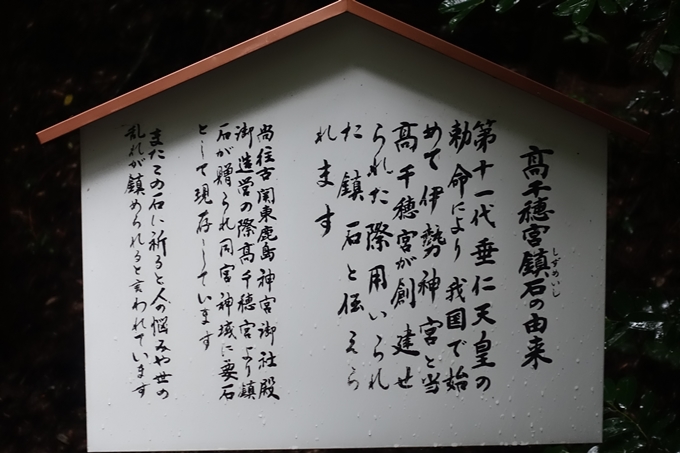 高千穂宮鎮石の由来
しずめいし
第十一代垂仁天皇の
勅命により我国で始
めて伊勢神宮と当
高千穂宮が創建せ
られた際用いられ
た鎮石と伝えら
れます
尚往古関東鹿島神宮御社殿
御造営の際高千穂宮より鎮
石が贈られ同宮神域に要石
として現存しています
またこの石に祈ると人の悩みや世の
乱れが鎮められると言われています